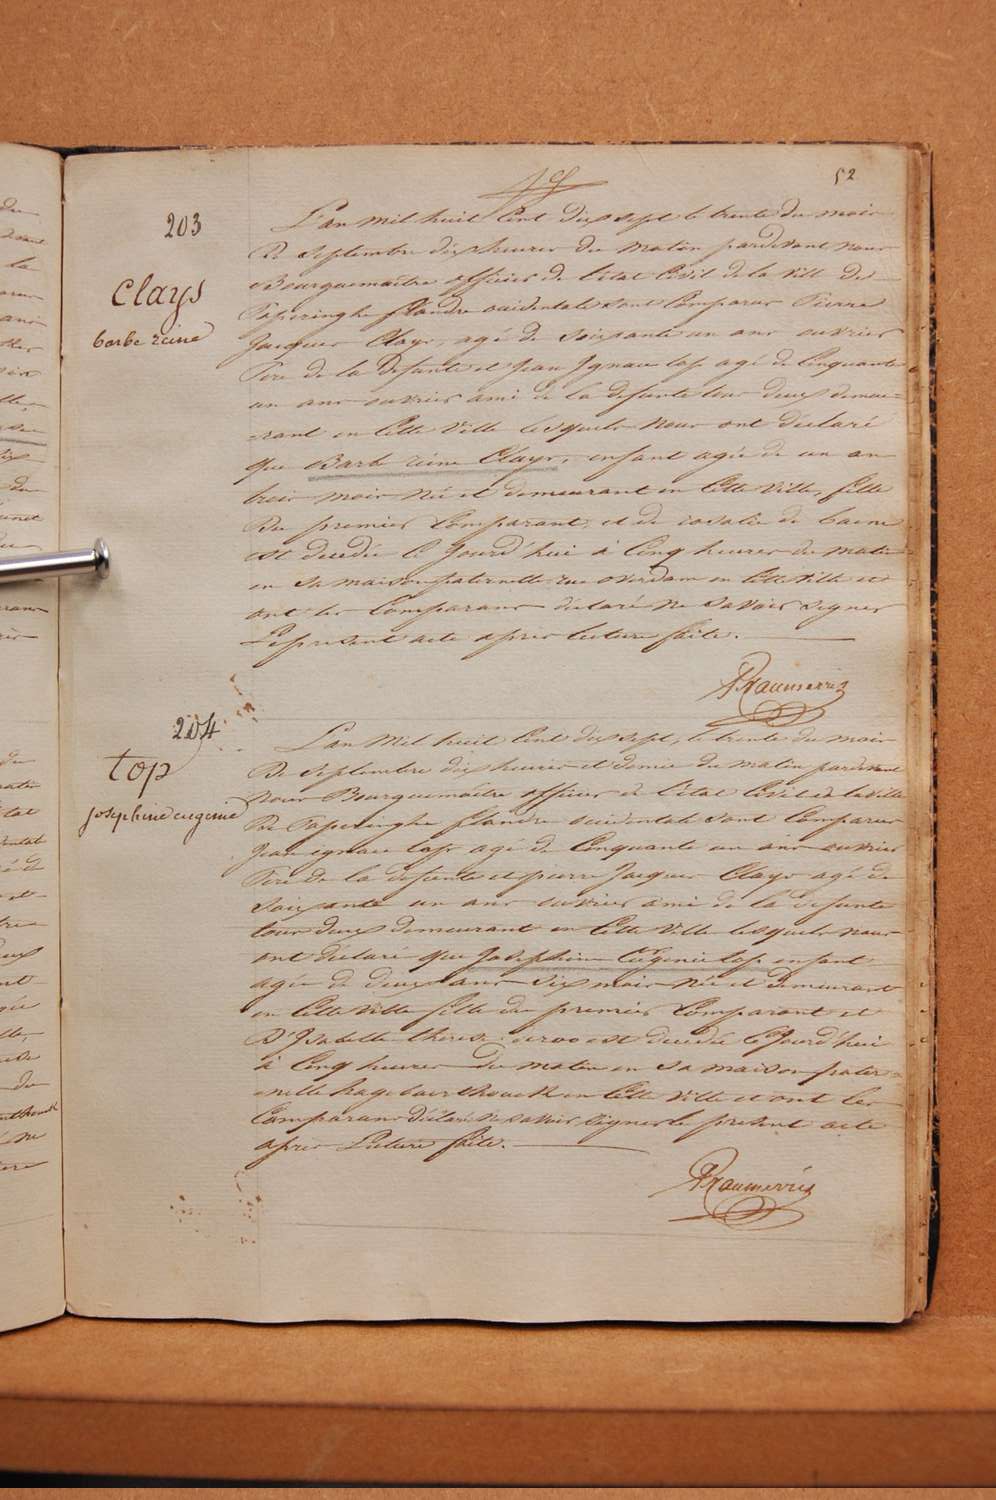 52
203
Clays
barbe reine
L'an mil huit Cent dix sept le trente du mois
De Septembre dix heures du matin pardevant nous
Bourguemaître officier de l'état Civil de la Ville de
Poperinghe flandre occidentale sont Comparus Pierre
Jacques Clays, agé de Soixante un ans ouvrier
Père de la Defunte et Jean Ignace top agé de Cinquante
un ans ouvrier ami de la defunte tous deux demeu-
-rant en Cette Ville lesquels Nous ont déclaré
que Barbe reine Clays, enfant agée de un an
trois mois Née et demeurant en Cette Ville, fille
Du premier Comparant, et de rosalie de baene
est decedée Ce Jourd'hui à Cinq heures du matin
en Sa maison paternelle rue overdam en Cette Ville et
ont les Comparans déclaré Ne Savoir Signer
Le present acte après lecture faite.
204
top
josephine eugenie
L'an Mil huit Cent dix sept, le trente du mois
De Septembre dix heures et demie du matin pardevant
Nous Bourguemaître officier de l'état Civil de la Ville
De Poperinghe flandre occidentale sont Comparus
Jean ignace top agé de Cinquante un ans ouvrier
Père de la defunte et pierre Jacques Clays agé de
Soixante un ans ouvrier ami de la defunte
tous deux demeurant en Cette Ville lesquels nous
ont déclaré que Josephine Eugenie top enfant
agée de deux ans Six mois Née et demeurant
en Cette Ville fille du premier Comparant et
D'Isabelle therese deroo est decedée Ce Jourd'hui
à Cinq heures du matin en Sa maison pater-
-nelle hagebaerthouck en Cette Ville et ont les
Comparans Déclaré Ne Savoir Signer le present acte
après Lecture faite.